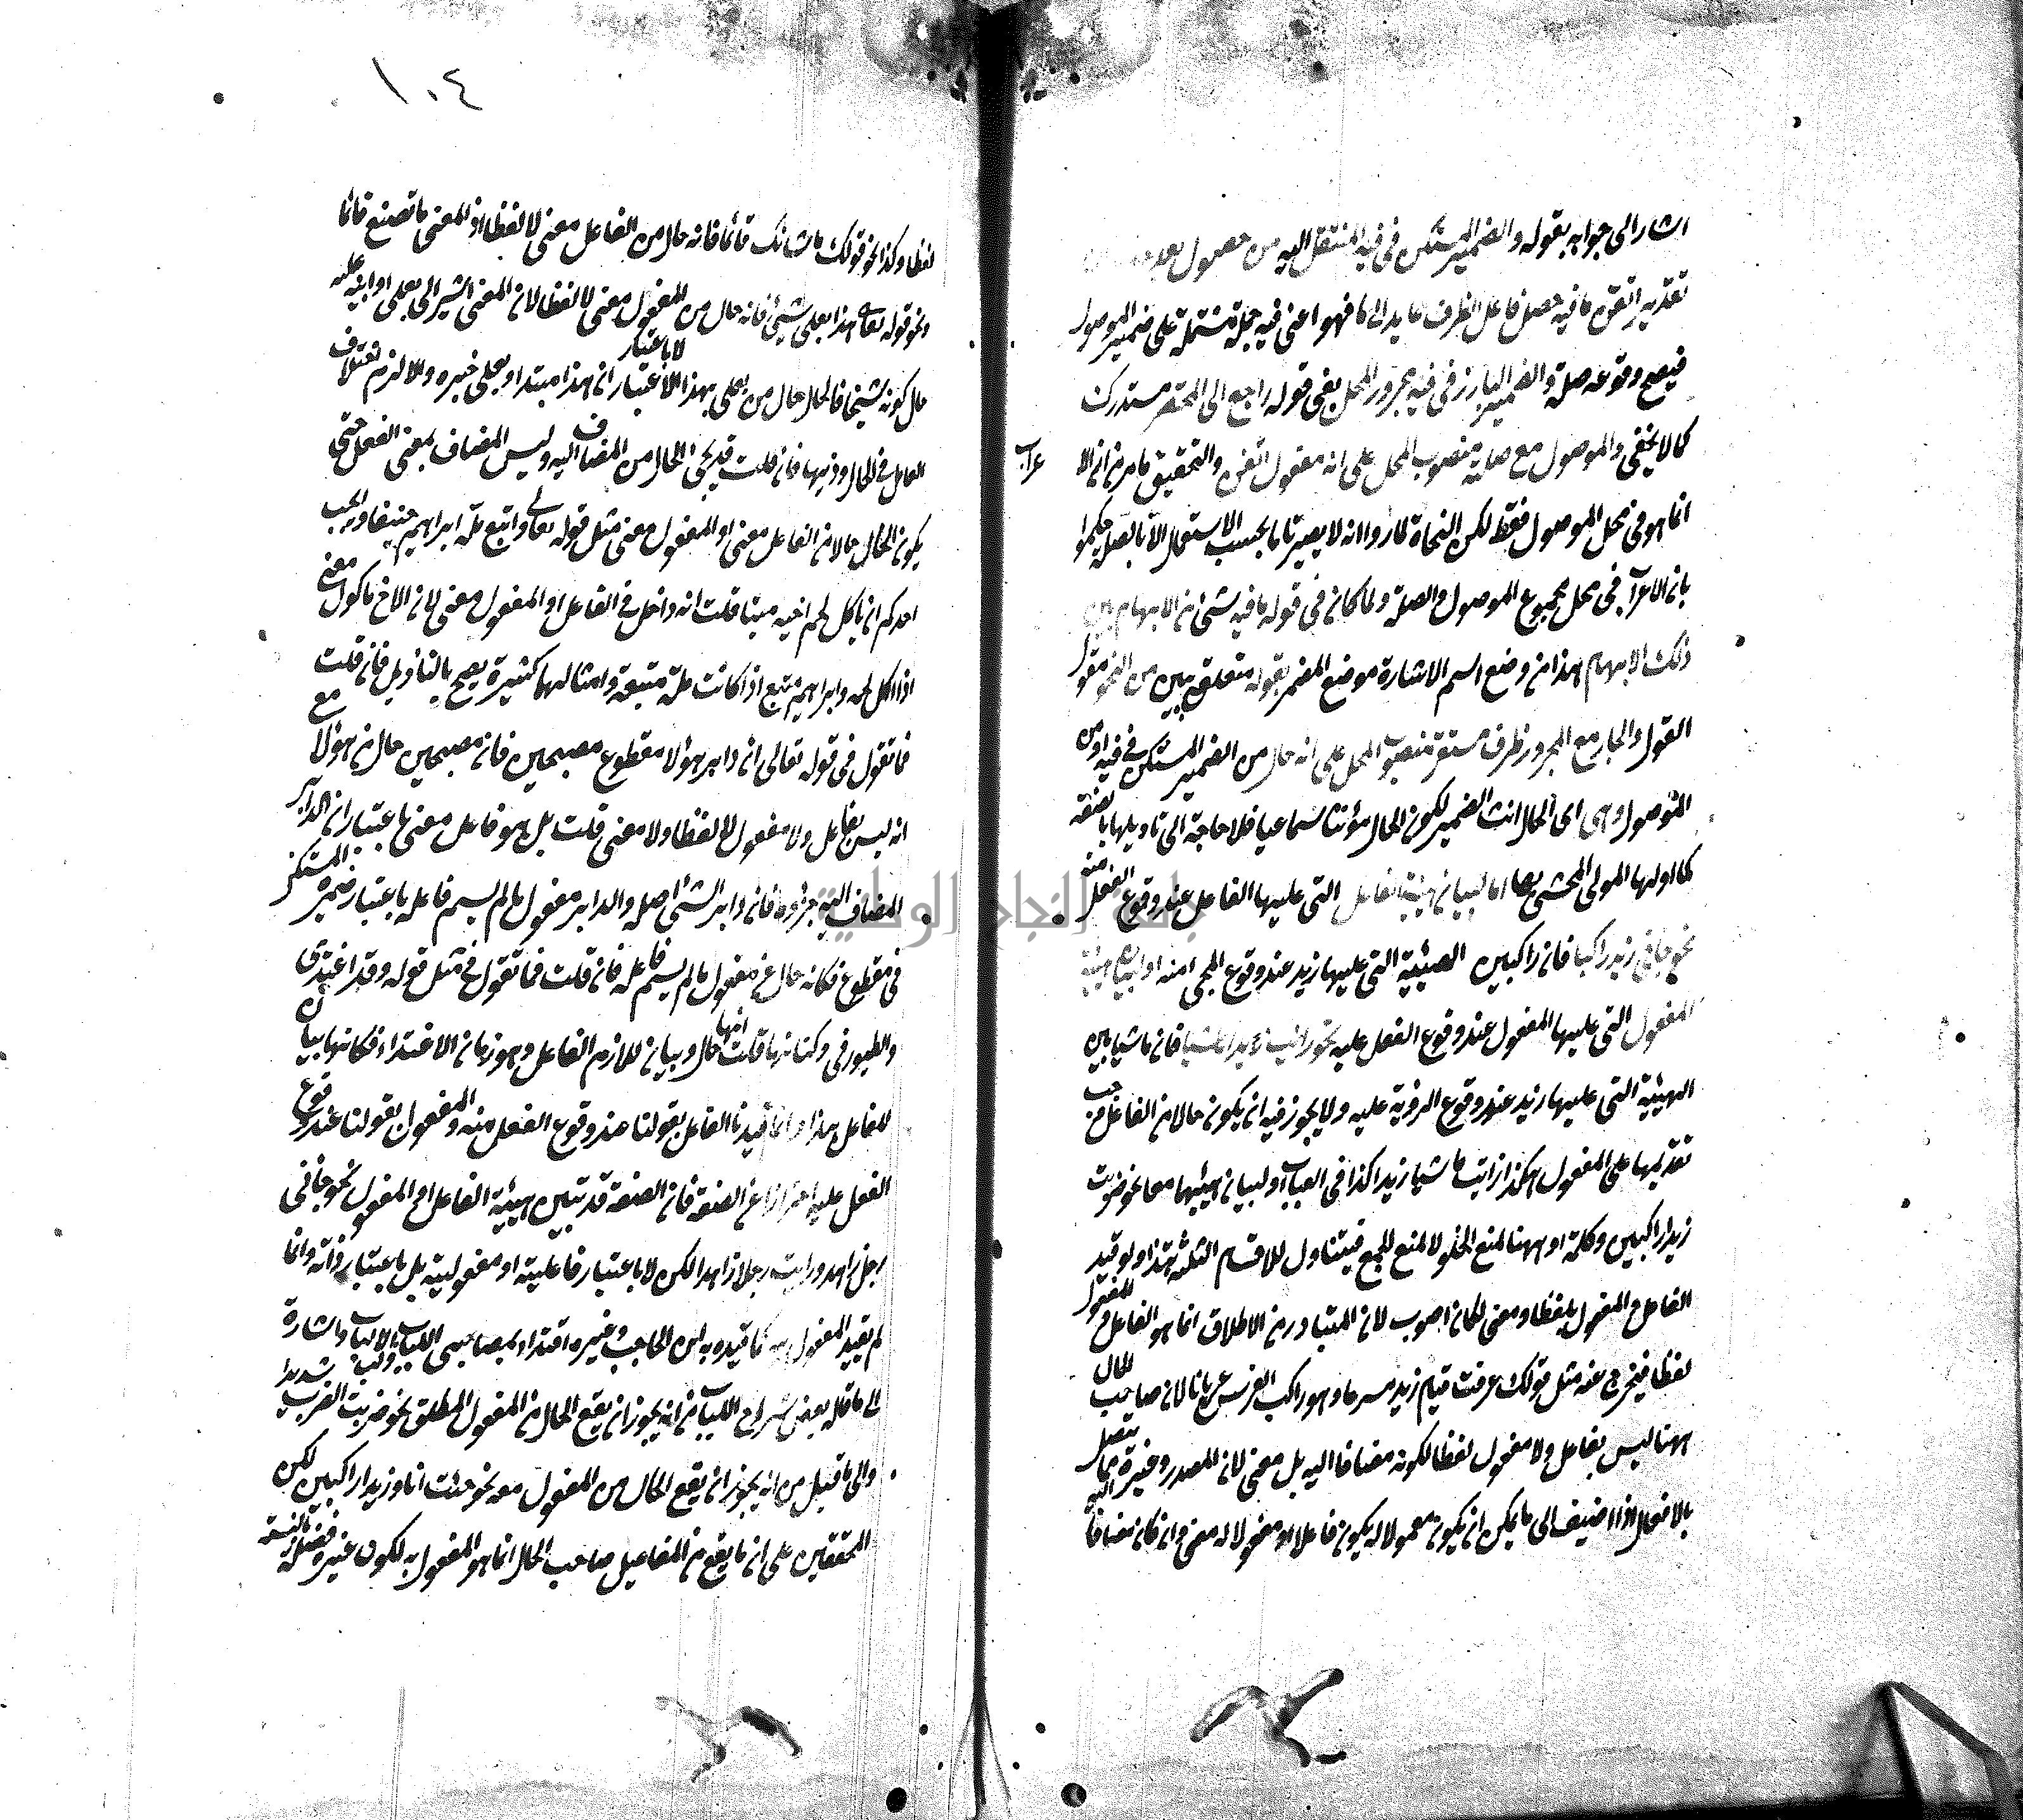 اشار الى جوابه بقوله والضمير المستكن في فيه المنتقل اليه من حصول بعد
تقديره اتقن ما فيه حصل فاعل الظرف عايد الى ما فهو اعني فيه جملة مشتملة على ضمير الموصول
فيصح وقوعه صلة والضمير البارز في فيه مجرور المحل بفي قوله راجع الى المختصر مستدرك
كما لا يخفى والموصول مع صلته منصوب المحل على انه مفعول اتقن والتحقيق ما مر من ان الا
عراب
انما هو في محل الموصول فقط لكن النحاة لما راوا انه لا يصير تاما بحسب الاستعمال الا بالصلة حكموا
بان الاعراب في محل مجموع الموصول والصلة ولما كان في قوله ما فيه شئ من الابهام بين
ذلك الابهام هذا من وضع اسم الاشارة موضع المضمر بقوله متعلق ببين من النحو مقول
القول والجار مع المجرور ظرف مستقر منصوب المحل على انه حال من الضمير المستكن في فيه او من
الموصول وهى اى الحال انث الضمير لكون الحال مؤنثا سماعيا فلا حاجة الى تاويلها بالصفة
كما اولها المولى المحشى بها اما لبيان هيئة الفاعل التى عليها الفاعل عند وقوع الفعل منه
نحو جاءنى زيد راكبا فان راكبا يبين الهيئة التى عليها زيد عند وقوع المجئ منه او لبيان هيئة
المفعول التى عليها المفعول عند وقوع الفعل عليه نحو رايت زيدا ماشيا فان ماشيا يبين
الهيئة التى عليها زيد عند وقوع الروية عليه ولا يجوز فيه ان يكون حالا من الفاعل فحب
تقديمها على المفعول هكذا رايت ماشيا زيدا كذا في العباب او لبيان هيئتهما معا نحو ضربت
زيدا راكبين وكلمة او ههنا لمنع الخلو لا لمنع الجمع فيتناول للاقسام الثلثة هذا ولو قيد
الفاعل والمفعول بلفظا ومعنى لكان اصوب لان المتبادر من الاطلاق انما هو الفاعل والمفعول
لفظا فيخرج عنه مثل قولك عرفت قيام زيد مسرعا وهو راكب الفرس عريانا لان صاحب الحال
ههنا ليس بفاعل ولا مفعول لفظا لكونه مضافا اليه بل معنى لان المصدر وغيره مما يتصل
بالافعال اذا اضيف الى ما يمكن ان يكون معمولا له يكون فاعلا او مفعولا له معنى وان كان مضافا اليه
١٠٤
لفظا وكذا نحو قولك ما شانك قائما فانه حال من الفاعل معنى لا لفظا اذ المعنى ما تصنع قائما
ونحو قوله تعالى هذا بعلى شيخا فانه حال من المفعول معنى لا لفظا لان المعنى اشير الى بعلى او انبه عليه
حال كونه شيخا فالحال حال من بعلى بهذا الاعتبار لا باعتبار ان هذا مبتدا وبعلى خبره والا لزم اختلاف
العامل في الحال وذيها فان قلت قد يجئ الحال من المضاف اليه وليس المضاف بمعنى الفعل حتى
يكون الحال حالا من الفاعل معنى او المفعول معنى مثل قوله تعالى واتبع ملة ابراهيم حنيفا وايحب
احدكم ان ياكل لحم اخيه ميتا قلت انه داخل في الفاعل او المفعول معنى لان الاخ ماكول معنى
اذا اكل لحمه وابراهيم متبع اذا كانت ملة متبعة وامثالها كثيرة يصح بالتاويل فان قلت
فما تقول في قوله تعالى ان دابر هؤلاء مقطوع مصبحين فان مصبحين حال من هؤلاء مع
انه ليس بفاعل ولا مفعول لا لفظا ولا معنى قلت بل هو فاعل معنى باعتبار ان الدابر
المضاف اليه جزؤه فان دابر الشئ اصله والدابر مفعول ما لم يسم فاعله باعتبار ضميره المستكن
في مقطوع فكانه حال عن مفعول ما لم يسم فاعله فان قلت فما تقول في مثل قوله وقد اغتدى
والطيور في وكناتها قلت انها حال وبيان للازم الفاعل وهو زمان الاغتداء فكانها بيان
للفاعل هذا وانما قيدنا الفاعل بقولنا عند وقوع الفعل منه والمفعول بقولنا عند وقوع
الفعل عليه احترازا عن الصفة فان الصفة قد تبين هيئة الفاعل او المفعول نحو جاءنى
رجل زاهد ورايت رجلا زاهدا لكن لا باعتبار فاعليته او مفعوليته بل باعتبار ذاته وانما
لم يقيد المفعول به كما قيده به ابن الحاجب وغيره اقتداء بصاحبى اللباب ولب الالباب واشارة
الى ما قاله بعض شراح اللباب من انه يجوز ان يقع الحال من المفعول المطلق نحو ضربت الضرب شديدا
والى ما قيل من انه يجوز ان يقع الحال من المفعول معه نحو جئت انا وزيدا راكبين لكن
المحققين على ان ما يقع من المفاعيل صاحب الحال انما هو المفعول به لكون غيره فضلة بالنسبة